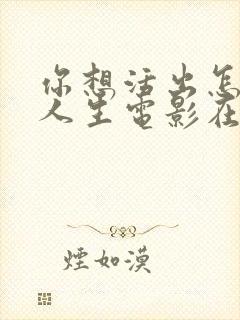 你想活出怎
人生电影在
煙如漠